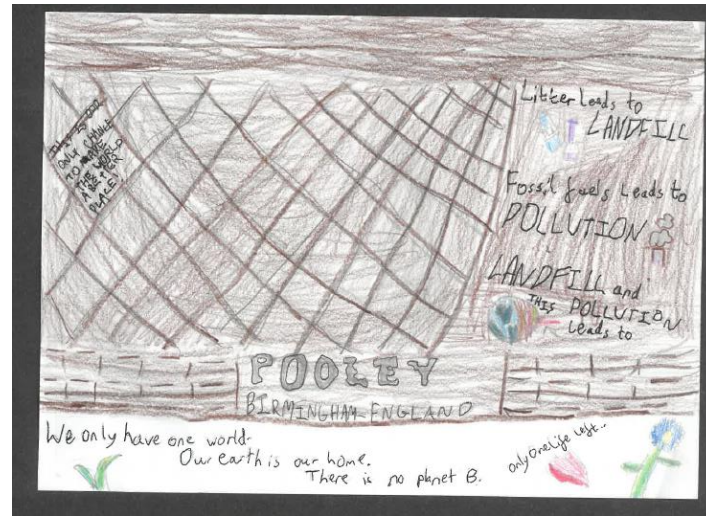 THIS IS OUR
ONLY CHANCE
TO MAKE
THE WORLD
A BETTER
PLACE!
Litter Leads to
LANDFILL
Fossil fuels Leads to
POLLUTION
LANDFILL and
POLLUTION
Leads to
THIS
POOLEY
BIRMINGHAM-ENGLAND
We only have one world-
Our earth is our home.
There is no planet B.
only one life left...